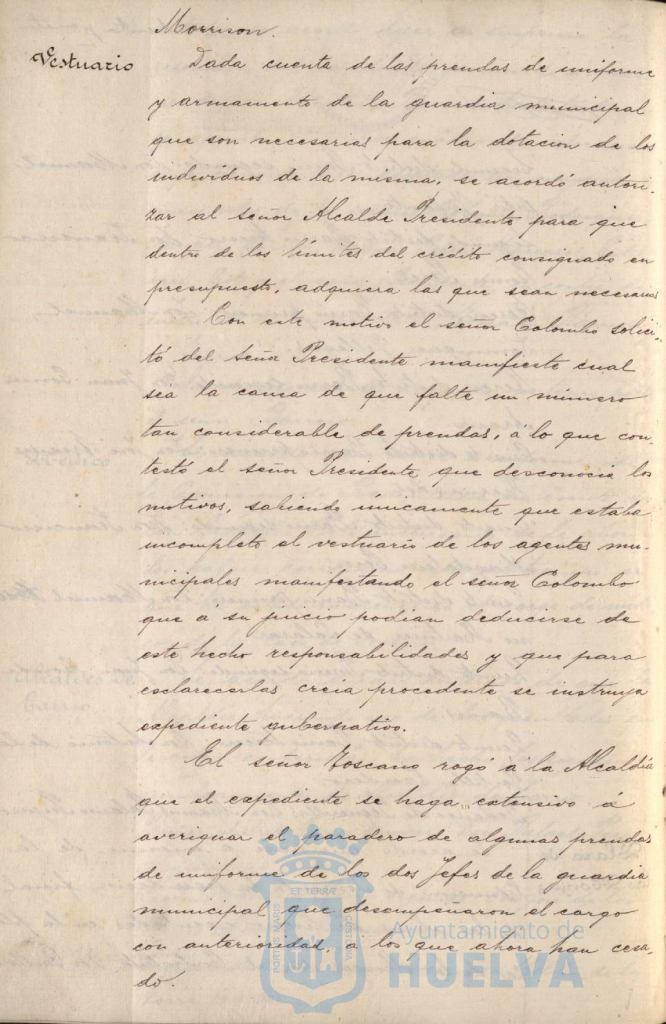 Morrison.
Vestuario
Dada cuenta de las prendas de uniforme
y armamento de la guardia municipal
que son necesarias para la dotacion de los
individuos de la misma, se acordó autori-
zar al señor Alcalde Presidente para que
dentro de los límites del crédito consignado en
presupuesto, adquiera las que sean necesarias
Con este motivo el señor Colombo solici-
tó del señor Presidente manifieste cual
sea la causa de que falte un número
tan considerable de prendas, á lo que con-
testó el señor Presidente que desconocia los
motivos, sabiendo únicamente que estaba
incompleto el vestuario de los agentes mu-
nicipales manifestando el señor Colombo
que á su juicio podian deducirse de
este hecho responsabilidades y que para
esclarecerlas creia procedente se instruya
expediente gubernativo.
El señor Toscano rogó á la Alcaldía
que el expediente se haga extensivo á
averiguar el paradero de algunas prendas
de uniforme de los dos Jefes de la guardia
municipal que desempeñaron el cargo
con anterioridad, á los que ahora han cesa-
do.
PORTUS MARIS ET TERRAE CUSTODIA
Ayuntamiento de
HUELVA